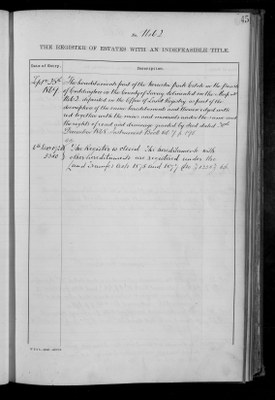 45
No. 1662
THE REGISTER OF ESTATES WITH AN INDEFEASIBLE TITLE
Date of Entry. Description.
The hereditaments part of the Worcester Park Estate in the Parish
of Cuddington in the County of Surrey delineated on the Map No
1662 deposited in the Office of Land Registry as part of the
description of the same hereditaments and thereon edged with
red together with the mines and minerals under the same and
the rights of road and drainage granted by deed dated
December 1878 Instrument Book
The Register is closed. The hereditaments with
other hereditaments are registered under the
Land Transfer Acts 1875 and 1897